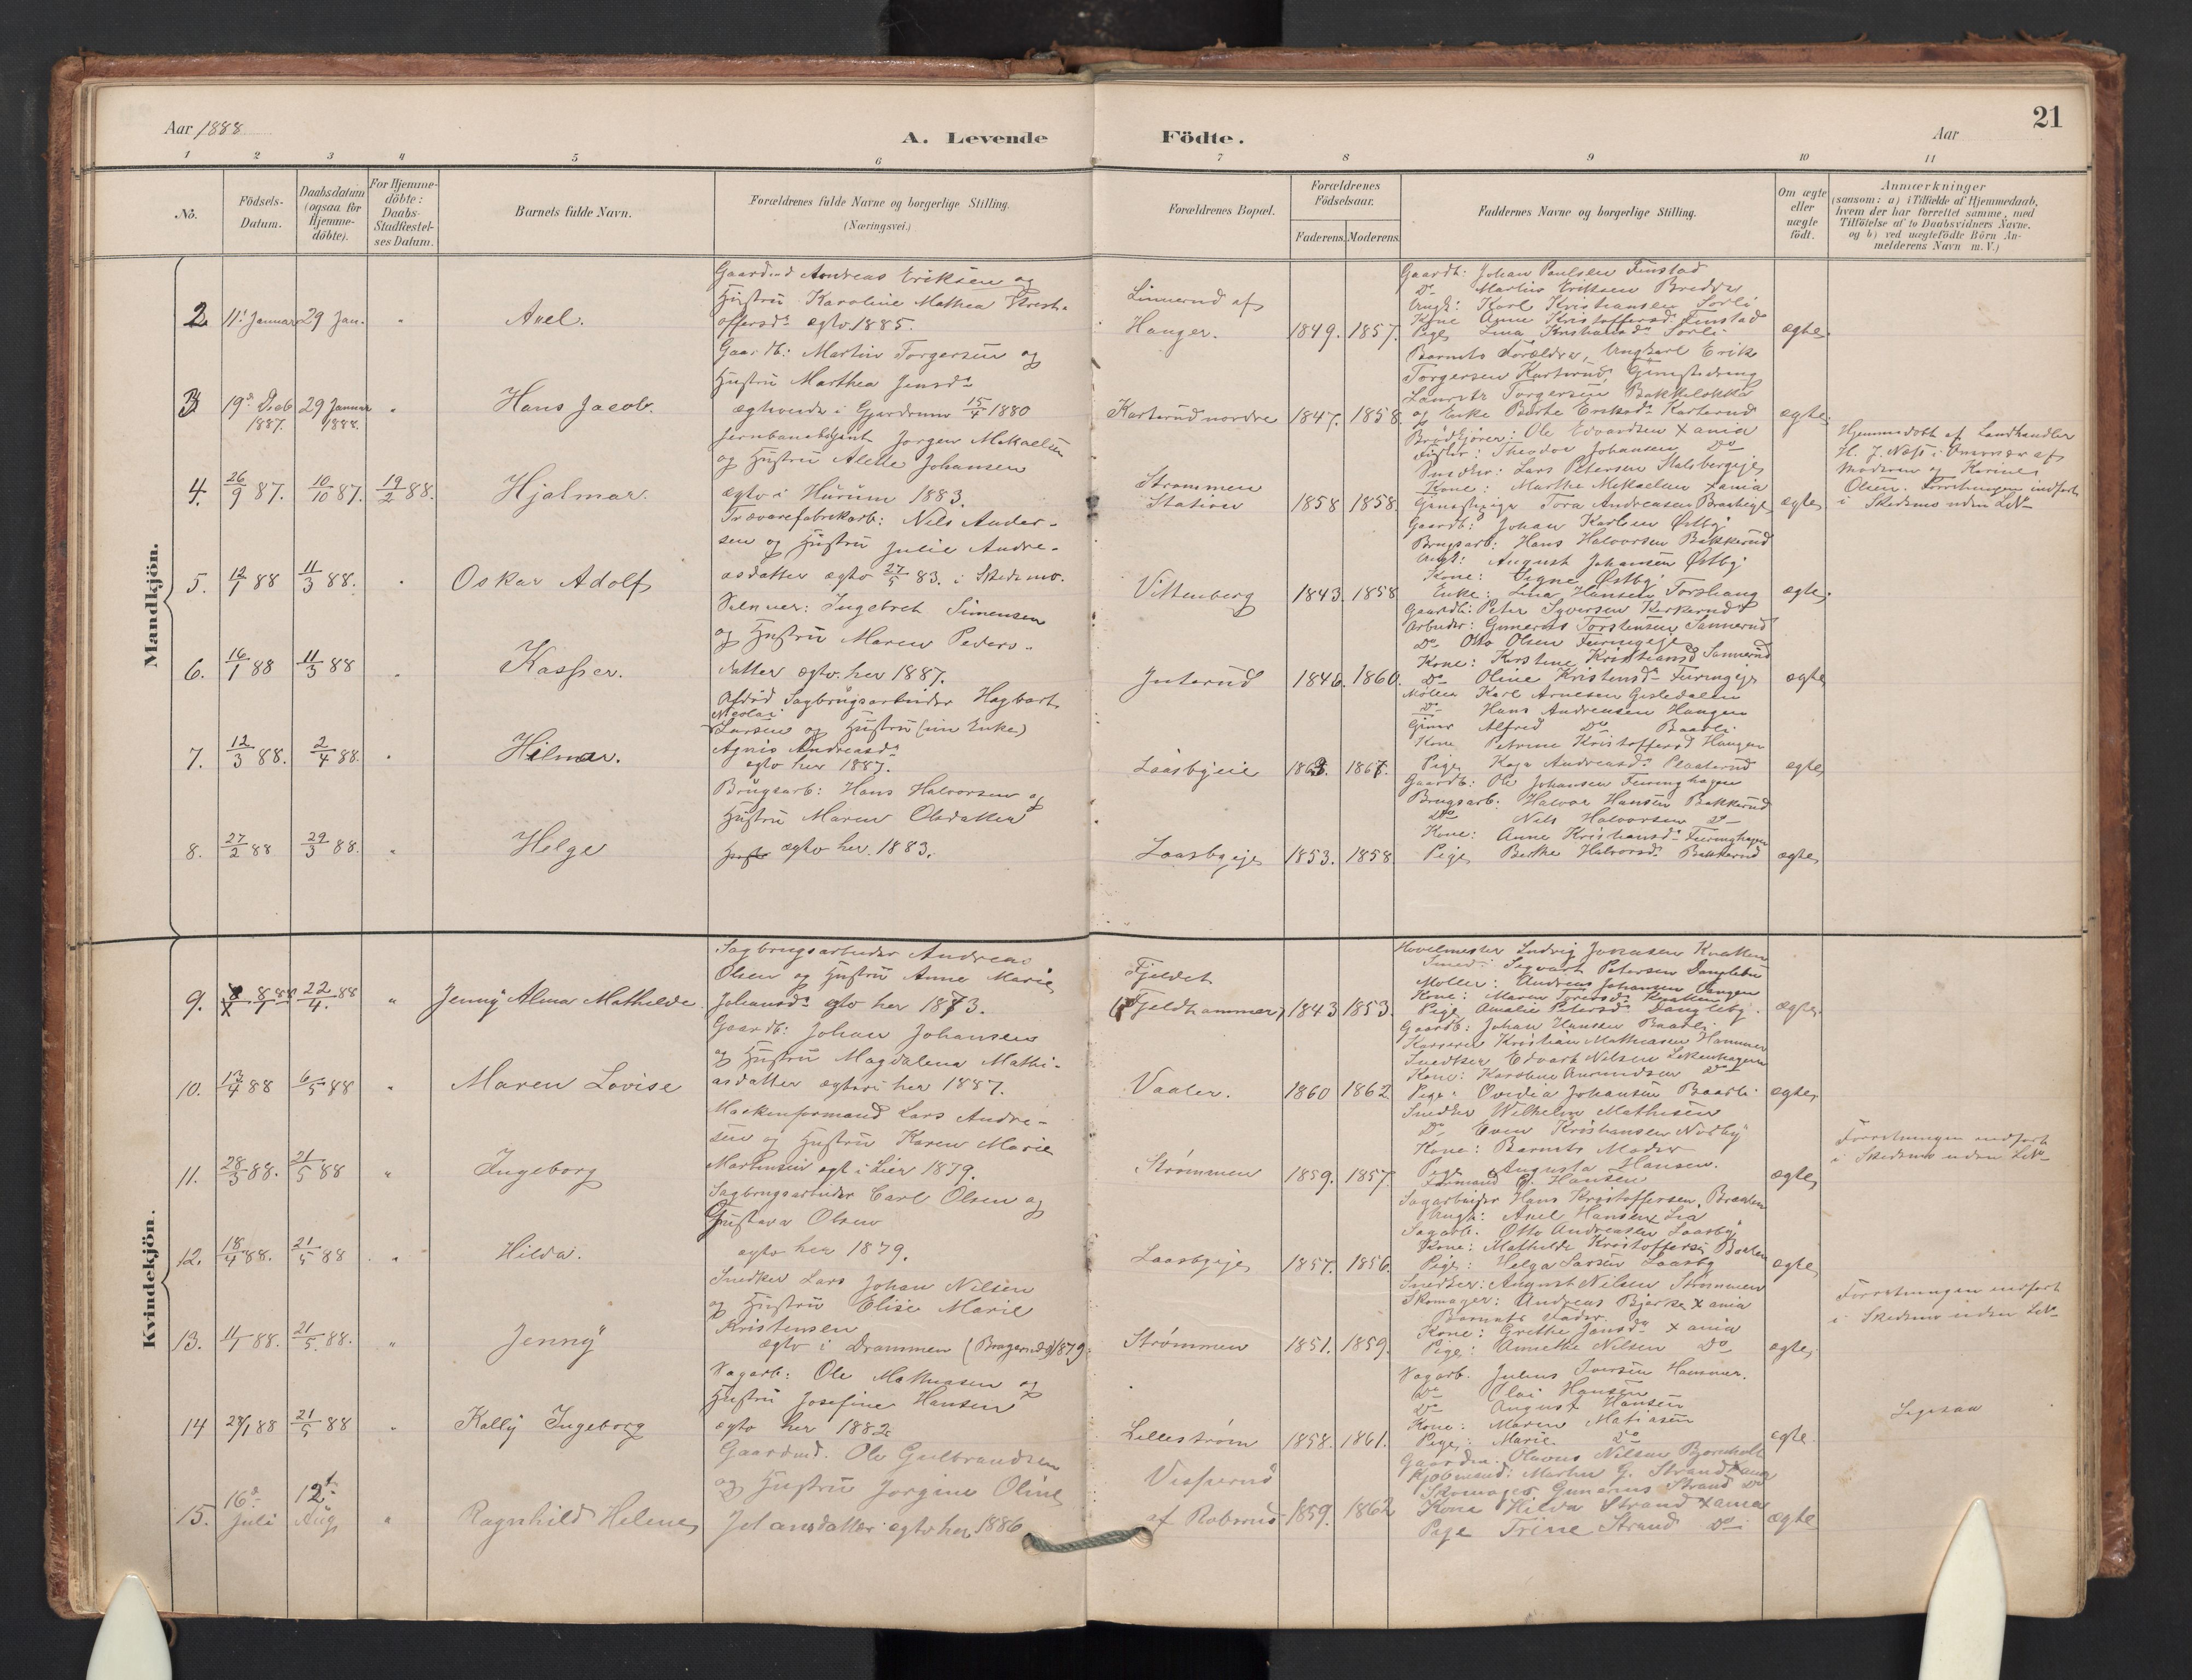 Aar 1888
A. Levende Födte.
Aar
21
1 2 3 4 5 6 7 8 9 10 11
No.
Födsels-Datum.
Daabsdatum (ogsaa for Hjemme-döbte).
For Hjemme-döbte: Daabs-Stadfæstelses Datum.
Barnets fulde Navn.
Forældrenes fulde Navne og borgerlige Stilling.
(Næringsvei.)
Forældrenes Bopæl.
Forældrenes Födselsaar.
Faderens. Moderens.
Faddernes Navne og borgerlige Stilling.
Om ægte eller uægte født.
Anmærkninger
(saasom: a) i Tilfælde af Hjemmedaab, hvem der har forrettet samme, med Tilföielse af to Daabsvidners Navne, og b) ved uægtefödte Börn Anmelderens Navn m. V.)
Mandkjön.
2. 11' Januar 29 Jan. " Axel.
Gaardmd Andreas Eriksen og
Hustru Karoline Mathea Krist-
offersd. egtv 1885.
Linnerud af
Hauger. 1849. 1857.
Gaardb: Johan Paulsen Finstad
Do Martius Eriksen
Ungk: Karl Kristiansen Sørli
Kone Anne Kristoffersd. Finstad
Pige Lina Kristiansd. Sørli
ægte.
3 19d Deeb 1887. 29 Januar 1888. " Hans Jacob.
Gaardb: Martin Torgersen og
Hustru Marthea Jensd.
egteviede i Gjerdrum 15/4 1880
Karterud nordre 1847. 1858.
Barnets Forældre, Ungkarl Erik
Torgersen Karterud,
Lauritz Torgersen Bakkeløkka
og Enke Berte Eriksd. Karterud
ægte.
4. 26/9 87. 10/10 87. 19/2 88. Hjalmar.
Jernbanebetjent Jørgen Mikaelsen
og Hustru Alette Johansen
egtv i Hurum 1883.
Strømmen
Station 1858 1858.
Brødkjører: Ole Edvardsen Xania
Theodor Johansen Do
Snedker: Lars Petersen Stalsbergeje
Kone: Marthe Mikaelsen Xania
Tora Andreasen
ægte
Hjemmedøbt af Landhandler
H. J. Næss i af
Moderen og Karine
Olsen. Forretningen indført
i Skedsmo uden LNo
5. 12/1 88 11/3 88. " Oskar Adolf
Trævarefabrikarb: Nils Ander-
sen og Hustru Julie Andre-
asdatter egtv 27/5 83. i Skedsmo.
Vittenberg 1843. 1858
Gaardb: Johan Karlsen Østby
Brugsarb: Hans Halvorsen Bakkerud
Ungk: August Johansen Østby
Kone: Signe Østby
Enke: Lina Hansen Torshaug
ægte.
6. 16/1 88 11/3 88 " Kasper.
Ingebret Simensen
og Hustru Maren Peders-
datter egtv. her 1887.
Juterud 1846. 1860.
Gaardb: Peter Syversen Karterud
Arbeider: Gunerius Torstensen Sannerud
Do Otto Olsen Furingeje
Kone: Kirstine Kristiansd Sannerud
Do Oline Kristensd. Furingeje
ægte
7. 12/3 88. 2/4 88. " Hilmar.
Afdød Sagbrugsarbeider Hagbart
Nicolai
Larsen og Hustru (nu Enke)
Agnis Andreasd.
egtv her 1887.
Laasbyeie 1863. 1867.
Møller Karl Arnesen Gisledalen
Do Hans Andreassen Haugen
Alfred Do Baarli
Kone Petrine Kristoffersd Haugen
Pige Kaja Andreasd.
ægte
8. 27/2 88 29/3 88. " Helge
Brugsarb: Hans Halvorsen og
Hustru Maren Olsdatter
egtv her. 1883.
Laasbyeje 1853. 1858
Gaardb: Ole Johansen Furinghagen
Brugsarb. Halvor Hansen Bakkerud
Do Nils Halvorsen Do
Kone: Anne Kristiansd. Furinghagen
Pige Berthe Halvorsd. Bakkerud
ægte
Kvindekjön.
9. 8/1 88 22/4. 88 " Jenny Alma Mathilde.
Sagbrugsarbeider Andreas
Olsen og Hustru Anne Marie
Johansd. egtv her 1873.
Fjeldet
(Fjeldhammer) 1843 1853.
Høvelmester Ludvig Knatten
Smed: Sigvart Petersen Dangleby
Møller: Andreas Johansen Haugen
Kone: Maren Knatten
Pige Amalie Petersd. Dangleby.
ægte.
10. 13/4 88 6/5 88 " Maren Lovise
Gaardb: Johan Johansen
og Hustru Magdalena Mathi-
asdatter egtev her 1887.
Vaaler. 1860 1862
Gaardb: Johan Hansen Baarli
Kristian Mathiasen Hammer
Snedker Edvart Nilsen
Kone: Karoline Do
Pige: Ovidia Johansen Baarli
ægte,
11. 28/3 88. 21/5 88 " Ingeborg
Maskinformand Lars Andre-
sen og Hustru Karen Marie
Martinsen egt i Lier 1879.
Strømmen 1859. 1857
Snedker Wilhelm Mathisen
Do Even Kristiansen Nordby
Kone: Barnets Moder
Pige Augusta Hansen.
Formand G. Hansen
ægte,
Forretningen indført
i Skedsmo uden LNo
12. 18/4 88. 21/5 88 " Hilda.
Sagbrugsarbeider Carl Olsen og
Gustava Olsen
egtv her 1879.
Laasbyeje 1857. 1856.
Sagarbeider Hans Kristoffersen Braaten
Ungk: Axel Hansen Lia
Sagarb. Otto Andreasen Laasby
Kone: Mathilde Kristoffers. Braaten
Pige: Helga Larsen Laasby
ægte
13. 11/1 88. 21/5. 88. " Jenny
Snedker Lars Johan Nilsen
og Hustru Elise Marie
Kristensen
egtv i Drammen (Bragernes) 1879.
Strømmen 1851. 1859.
Snedker: August Nilsen Strømmen
Skomager: Andreas Bjerke Xania
Barnets Fader
Kone: Grethe Jensd. Xania
Pige: Annethe Nilsen Do
ægte,
Forretningen indført
i Skedsmo uden LNo
14 29/1 88 21/5 88 " Kally Ingeborg
Sagarb: Ole Mathiasen og
Hustru Josefine Hansen
egtv her 1882
Lillestrøm 1858. 1861.
Sagarb. Julius Iversen Hammer.
Do Olai Hansen
Do August Hansen
Kone: Maren Matiasen
Pige: Marie Do
egte.
Ligesaa
15. 16d Juli 12t Aug. " Ragnhild Helene,
Gaardmd. Ole Gulbrandsen
og Hustru Jorgine Oline
Johansdatter egtv her 1886
Visperud
af Robsrud 1859. 1862
Gaardm. Olavus Nilsen Bjørnholt
Kjøbmand: Martin G. Strand Xania
Skomager Gunerius Strand Do
Kone Hilda Strand Xania
Pige Trine Strand Do
ægte